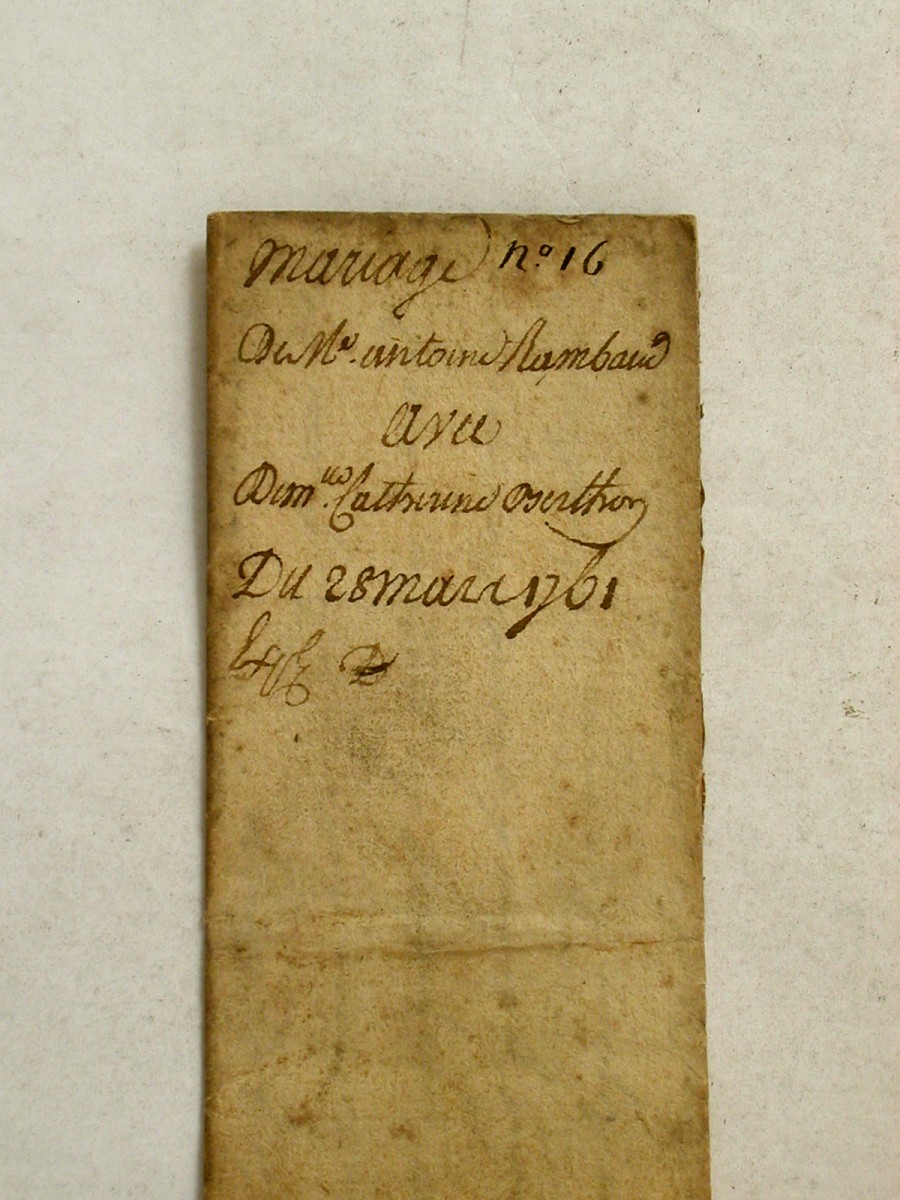 mariage n° 16
De Me. antoine Rambaud
avec
Demlle. Catherine Berthon
Du 28 mars 1761